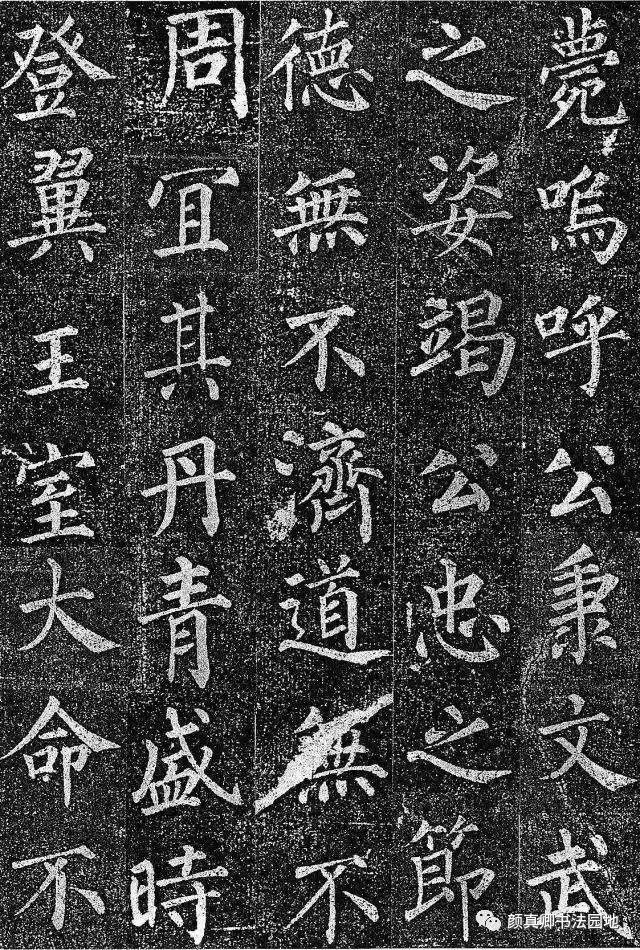 薨嗚呼公秉文武
之姿竭公忠之節
德無不濟道無不
周宜其丹青盛時
登翼王室大命不
颜真卿书法园地